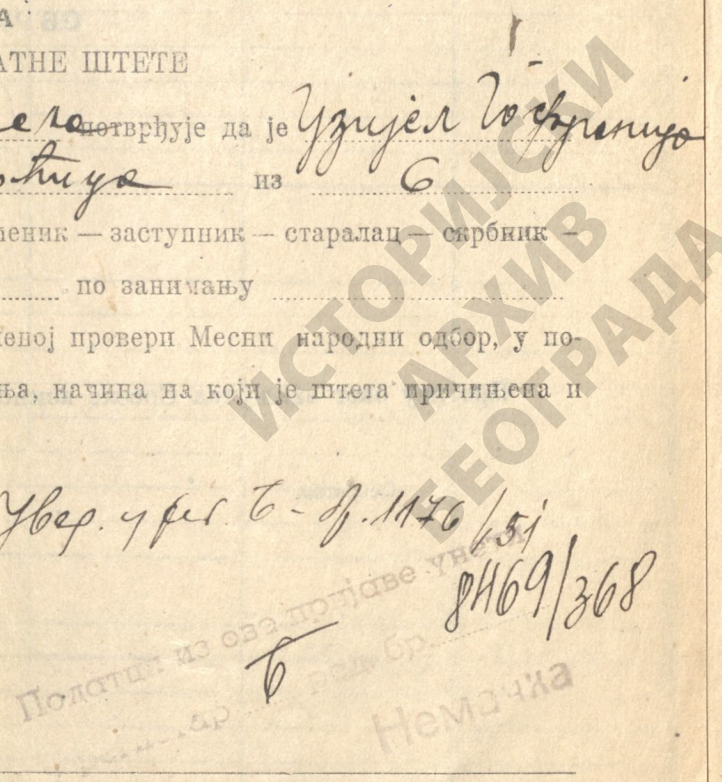 А
АТНЕ ШТЕТЕ
потврђује да је Узијел
из Б
ђеник — заступник — старалац — скрбник —
по занимању
епој провери Месни народни одбор, у по-
ња, начина на који је штета причињена и
Увер. у рег. Б - 1176/51
8469/368
Податци из ове пријаве унети
ред. бр.
Б
Немачка
ИСТОРИЈСКИ
АРХИВ
БЕОГРАДА